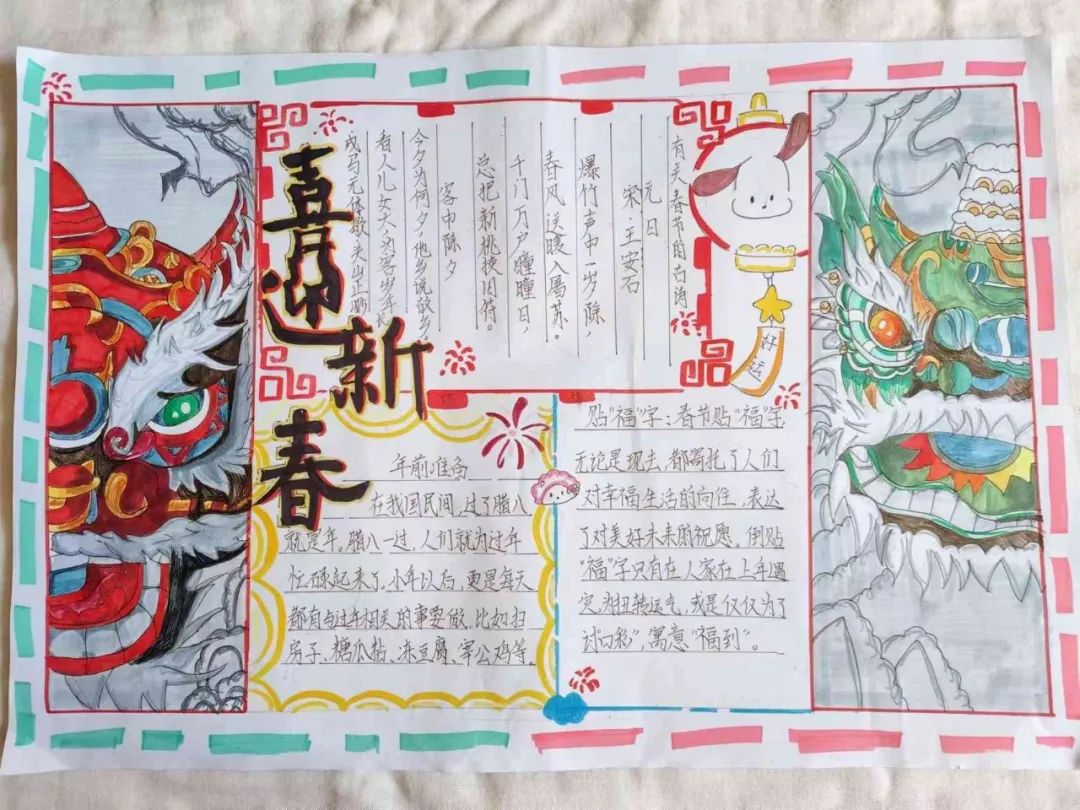 喜迎新春
有关春节的古诗
元日
宋·王安石
爆竹声中一岁除
春风送暖入屠苏。
千门万户瞳瞳日，
总把新桃换旧符。
客中除夕
今夕为何夕，他乡说故乡
看人儿女大，为客岁年长
戎马无休歇，关山正渺
好运
年前准备
在我国民间，过了腊八
就是年。腊八一过，人们就为过年
忙碌起来了。小年以后，更是每天
都有与过年相关的事要做，比如扫
房子、糖瓜粘、冻豆腐、宰公鸡等。
贴“福”字：春节贴“福”字
无论是现去，都寄托了人们
对幸福生活的向往，表达
了对美好未来的祝愿。倒贴
“福”字只有在人家在上年遇
灾，为扭转运气，或是仅仅为了
讨口彩”，寓意“福到”。